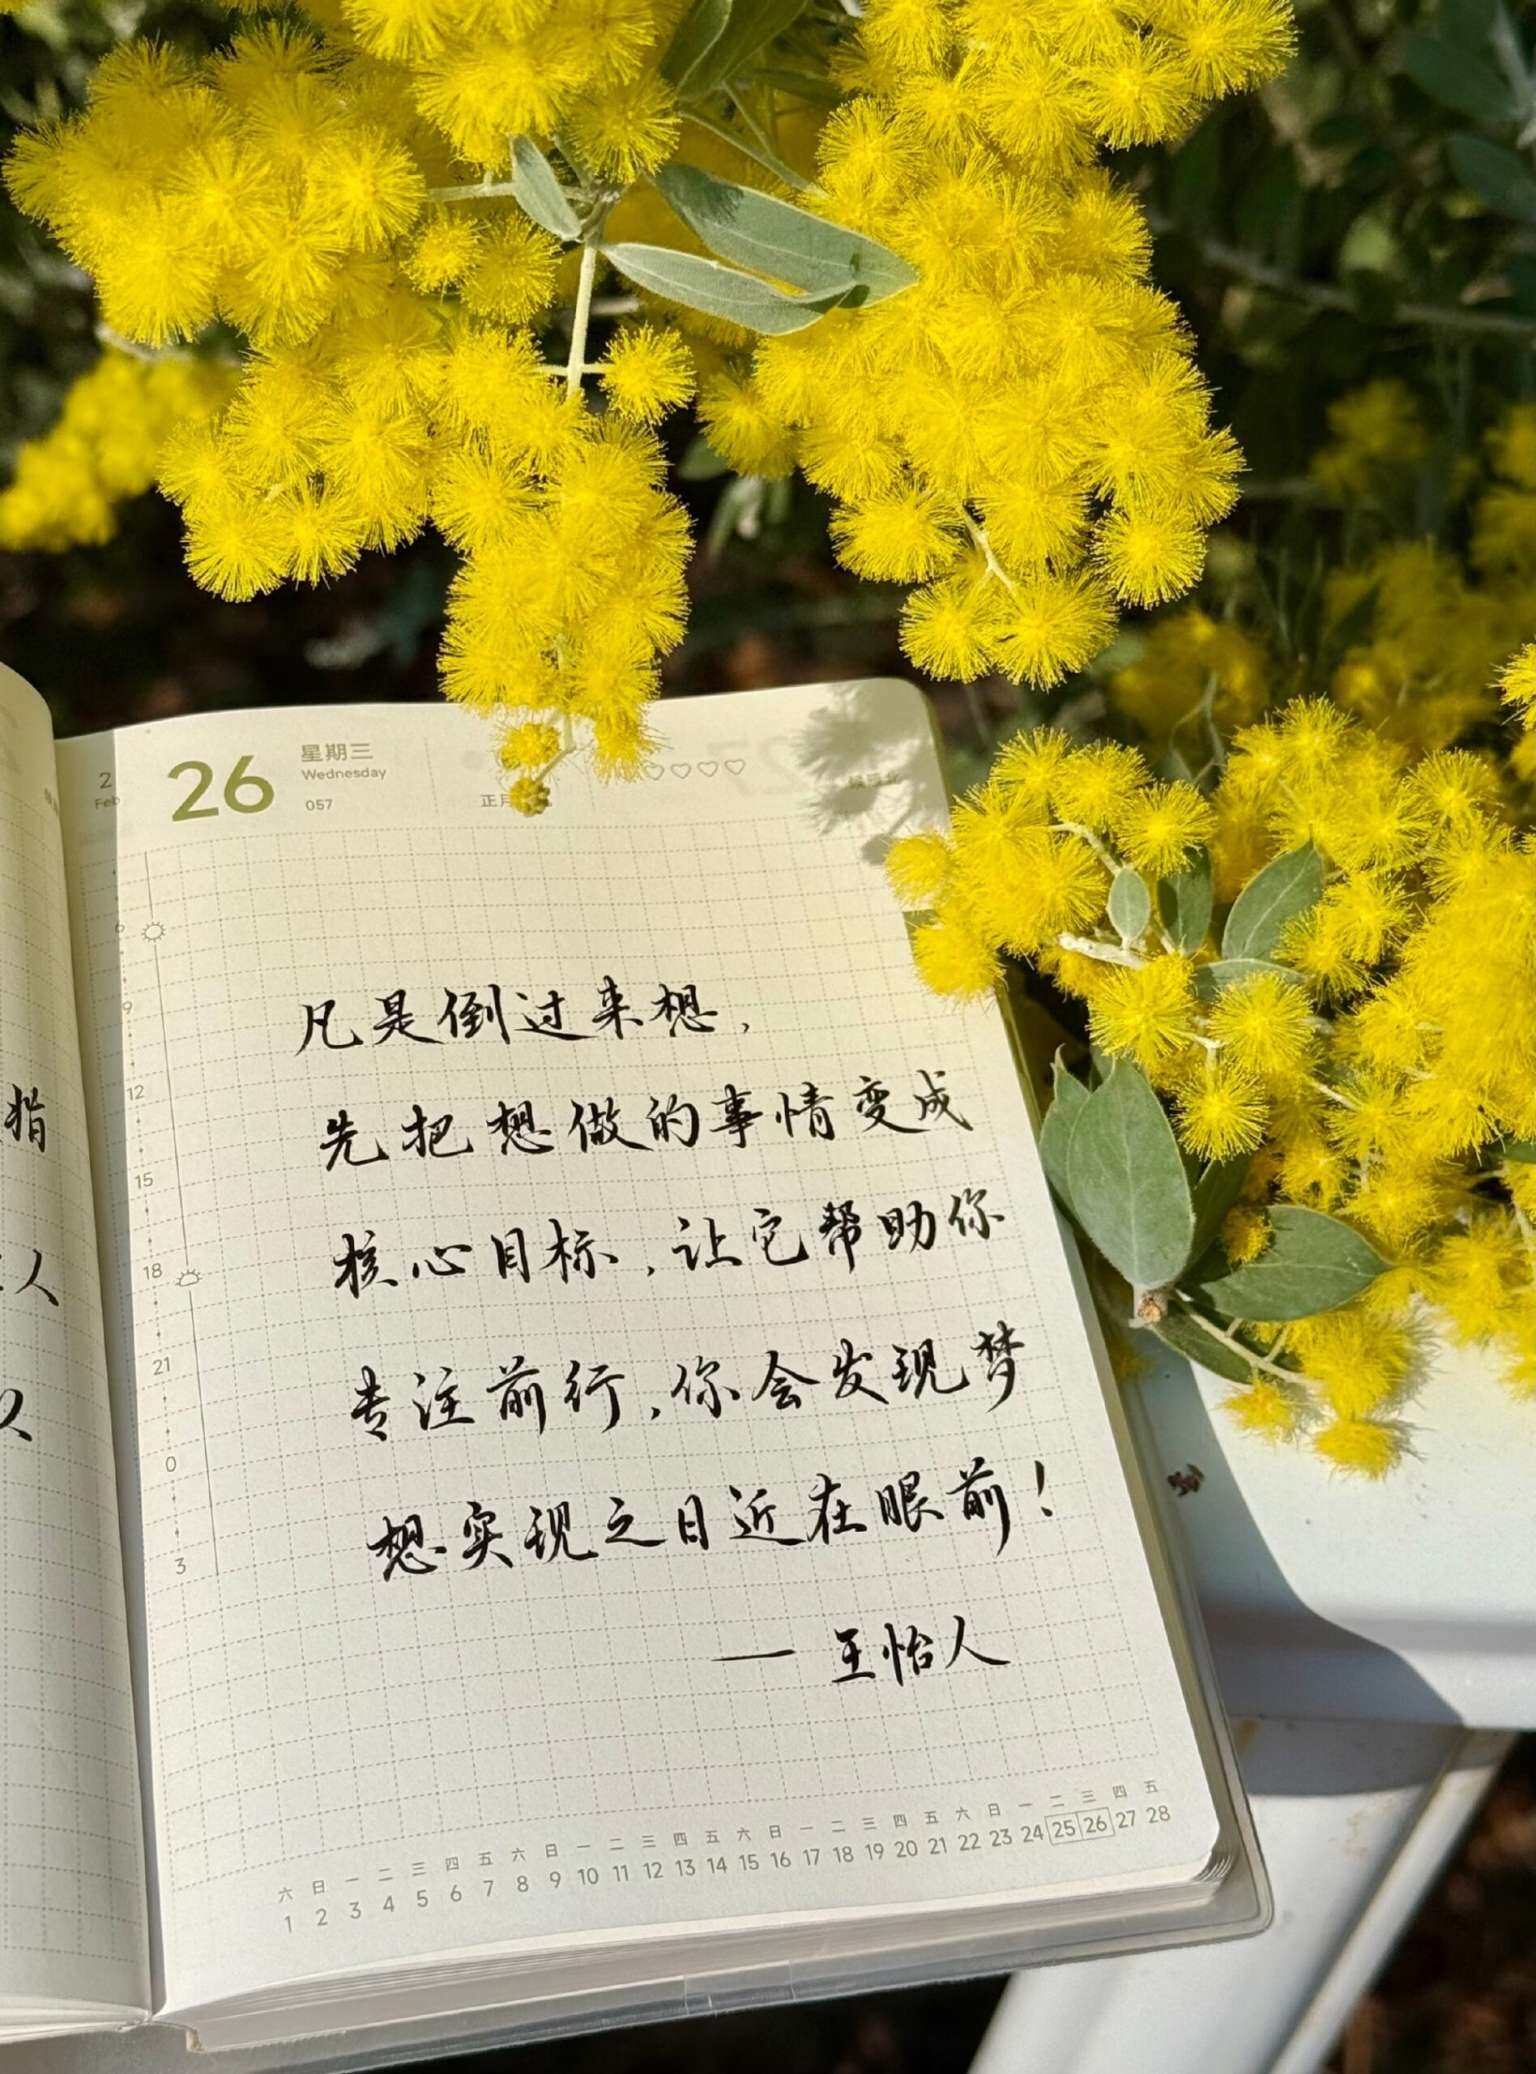 2
Feb
26
星期三
Wednesday
057
正月
凡是倒过来想，
先把想做的事情变成
核心目标，让它帮助你
专注前行，你会发现梦
想实现之日近在眼前！
— 王怡人
6
9
12
15
18
21
0
3
指
人
六 日 一 二 三 四 五 六 日 一 二 三 四 五 六 日 一 二 三 四 五 六 日 一 二 三 四 五
1 2 3 4 5 6 7 8 9 10 11 12 13 14 15 16 17 18 19 20 21 22 23 24 25 26 27 28